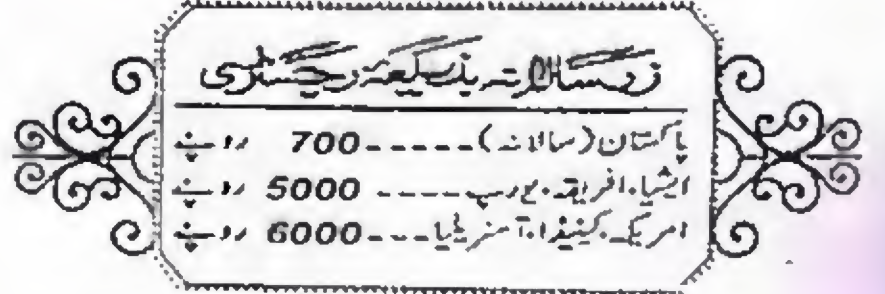 زرِ سالانہ بذریعہ رجسٹری
پاکستان (سالانہ) ----- 700 روپے
ایشیا، افریقہ، یورپ ---- 5000 روپے
امریکہ، کینیڈا، آسٹریلیا --- 6000 روپے